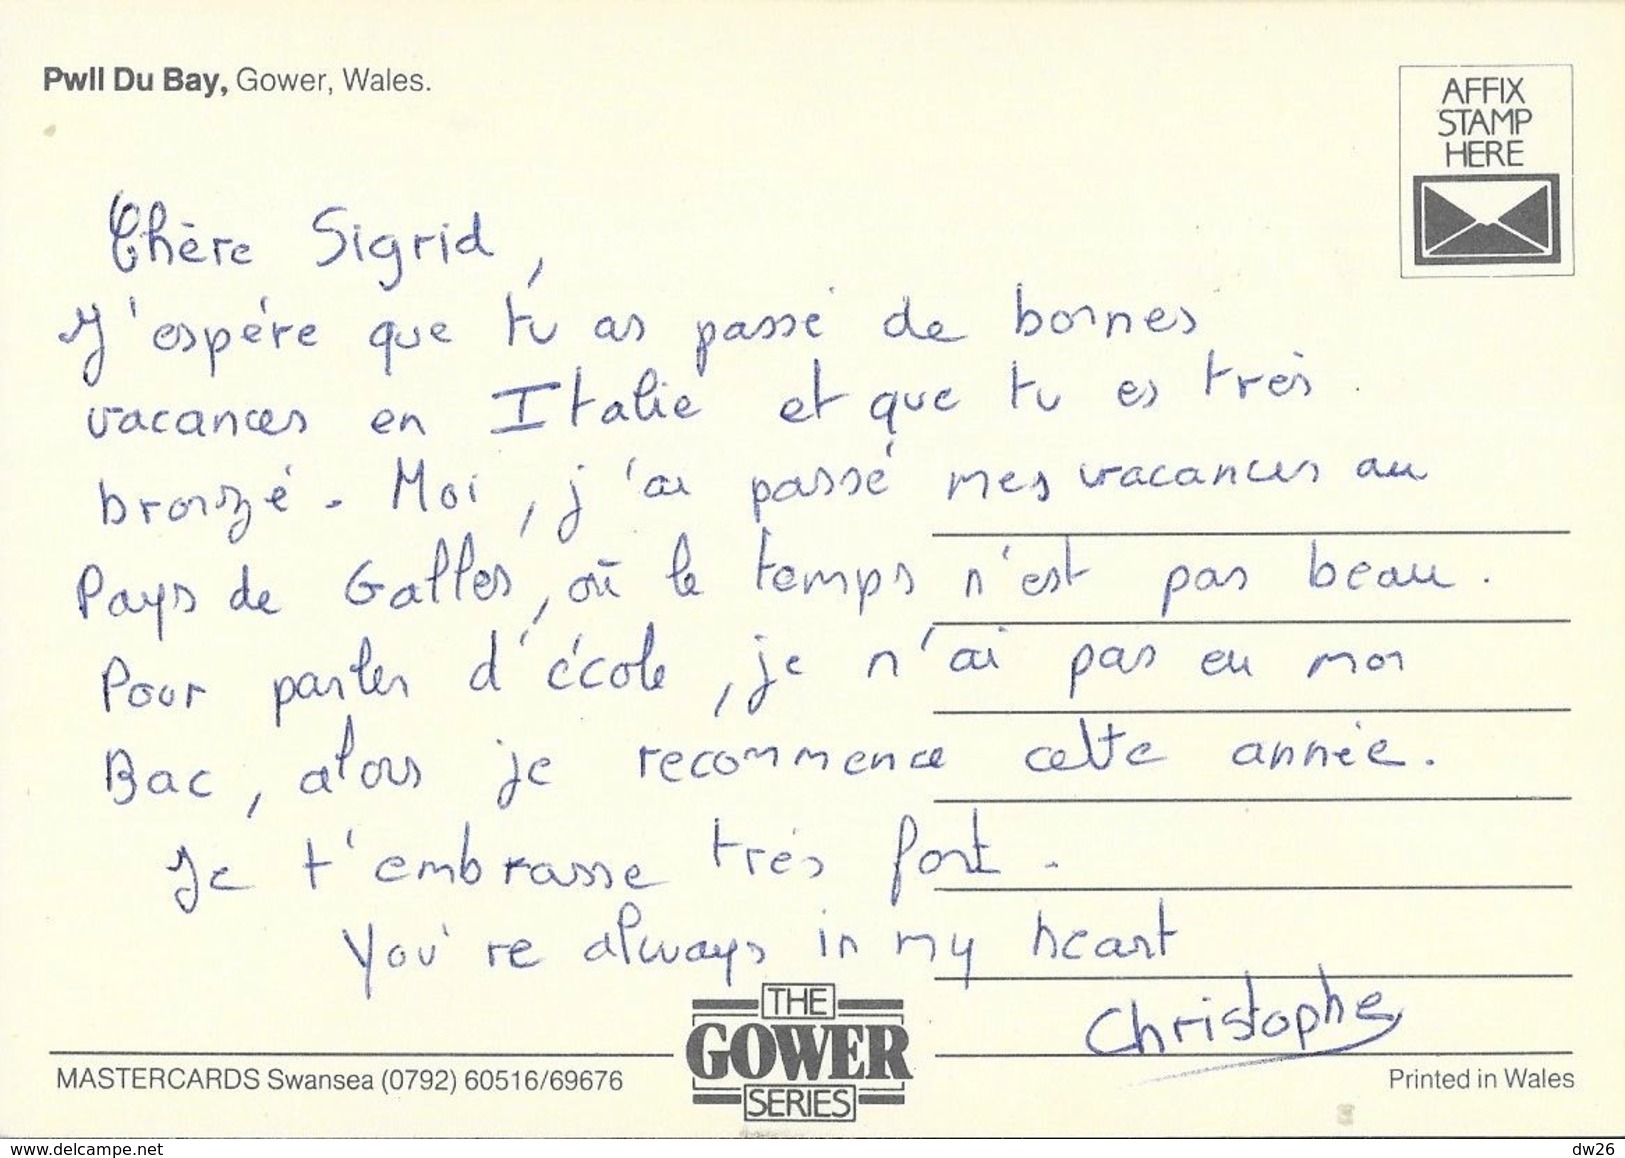 Pwll Du Bay, Gower, Wales.
AFFIX
STAMP
HERE
Chère Sigrid,
J'espére que tu as passé de bonnes
vacances en Italie et que tu es très
bronzé. Moi, j'ai passé mes vacances au
Pays de Galles, où le temps n'est pas beau.
Pour parler d'école, je n'ai pas eu mon
Bac, alors je recommence cette année.
Je t'embrasse trés fort.
You're always in my heart
Christophe
THE
GOWER
SERIES
MASTERCARDS Swansea (0792) 60516/69676
Printed in Wales
dw26